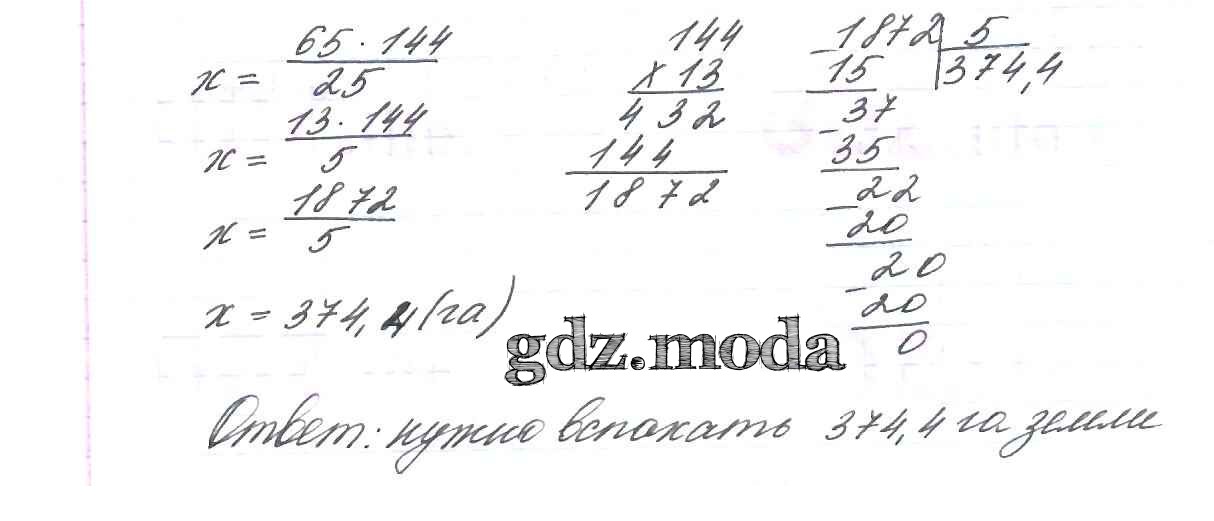 x = 65 · 144 / 25
x = 13 · 144 / 5
x = 1872 / 5
x = 374,4 (га)
144
× 13
432
144
1872
1872 | 5
374,4
- 15
37
- 35
22
- 20
20
- 20
0
gdz.moda
Ответ: нужно вспахать 374,4 га земли